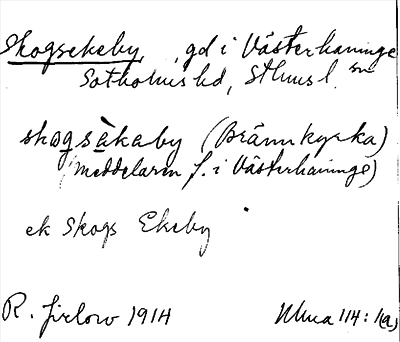 Skogsekeby, gd i Västerhaninge sn
Sotholms hd, Sthms l.
skogsä̀kaby (Brännkyrka)
(meddelaren f. i Västerhaninge)
ek Skogs Ekeby
R. Jirlow 1914 Ulma 114:1(a)